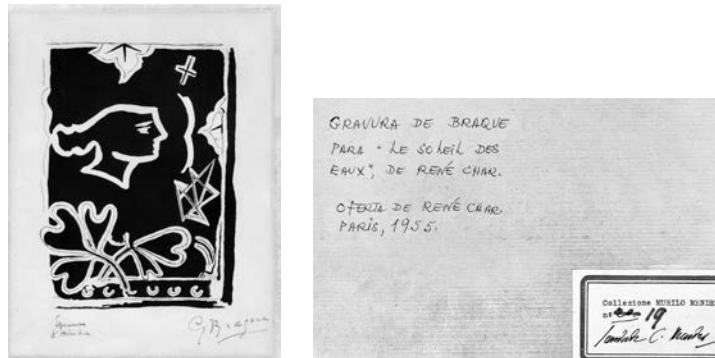 Épreuve
d'Artiste
G Braque
GRAVURA DE BRAQUE
PARA "LE SOLEIL DES
EAUX", DE RENÉ CHAR.
OFERTA DE RENÉ CHAR.
PARIS, 1955.
Collezione MURILO MENDE
nº 19
C. Mendes